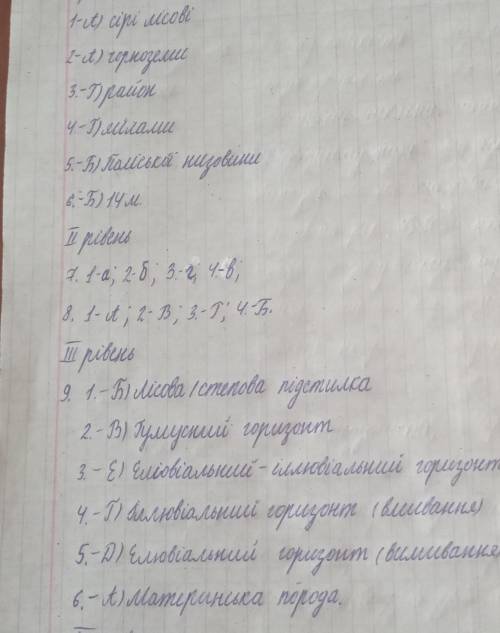 1-А) сірі лісові
2-А) чорноземи
3.-Г) район
4.-Г) мілами
5.-Б) Поліської низовини
6.-Б) 14 м.
II рівень
7. 1-а; 2-б; 3.-г, 4-в;
8. 1-А; 2-В; 3.-Г; 4.-Б.
III рівень
9. 1.-Б) Лісова/степова підстилка
2.-В) Гумусний горизонт
3.-Е) Елювіальний-іллювіальний горизонт
4.-Г) Іллювіальний горизонт (вмивання)
5.-Д) Елювіальний горизонт (вимивання
6.-А) Материнська порода.